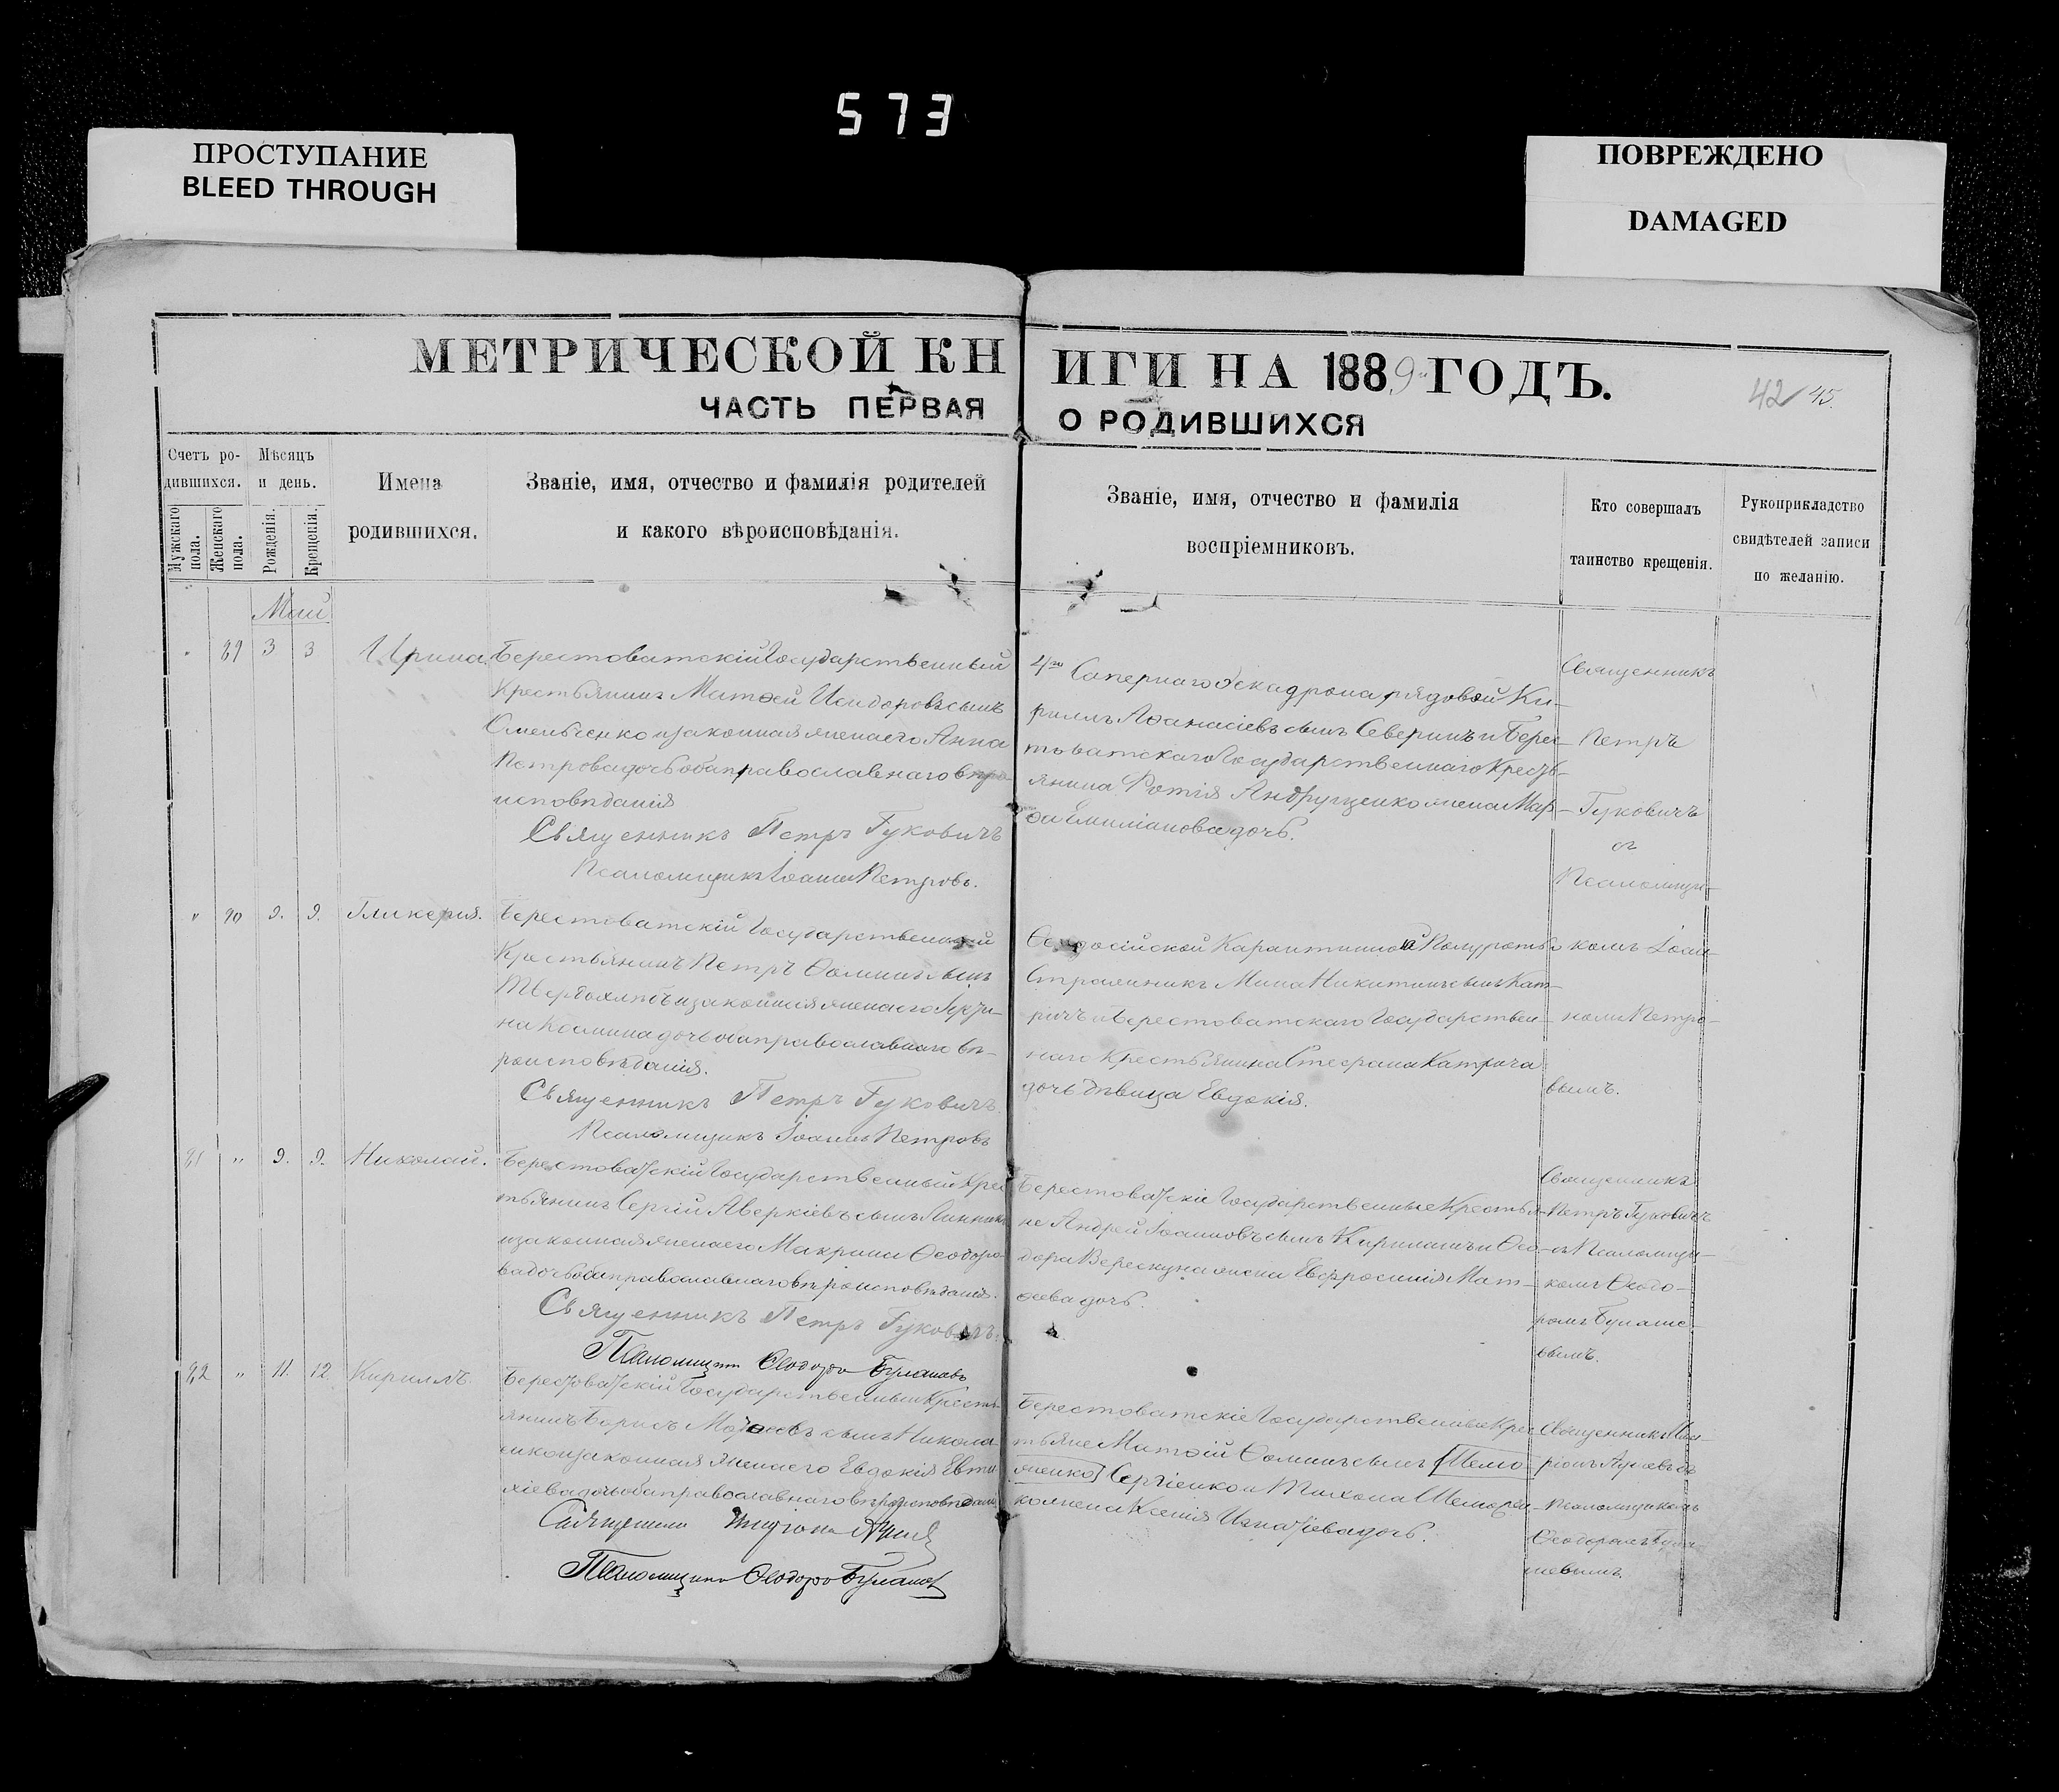 573
ПРОСТУПАНИЕ
BLEED THROUGH
ПОВРЕЖДЕНО
DAMAGED
МЕТРИЧЕСКОЙ КНИГИ НА 1889 ГОДЪ.
42 45.
ЧАСТЬ ПЕРВАЯ О РОДИВШИХСЯ
Счетъ ро-
дившихся.
Мужскаго пола.
Женскаго пола.
Мѣсяцъ
и день.
Рожденія.
Крещенія.
Имена
родившихся.
Званіе, имя, отчество и фамилія родителей
и какого вѣроисповѣданія.
Званіе, имя, отчество и фамилія
воспріемниковъ.
Кто совершалъ
таинство крещенія.
Рукоприкладство
свидѣтелей записи
по желанію.
Май
3 3 Ирина. Берестоватскій Государственный
Крестьянинъ Матѳей Исидоровъ сынъ
и законная жена его Анна
Петрова дочь оба православнаго
исповѣданія
Священникъ Петръ Гуковичъ
Псаломщикъ Іоаннъ Петровъ.
4го Сапернаго рядовой Ки-
риллъ Аѳанасіевъ сынъ Северинъ и Берес-
товатскаго Государственнаго Кресть-
янина Фотія Андрущенко жена Мар-
ѳа Емиліанова дочь.
Священникъ
Петръ
Гуковичъ
съ
Псаломщи-
" 9. 9. Гликерія. Берестоватскій Государственный
Крестьянинъ Петръ Ѳоминъ сынъ
Твердохлѣбъ и законная жена его
на Космина дочь оба православнаго вѣ-
роисповѣданія.
Священникъ Петръ Гуковичъ
Псаломщикъ Іоаннъ Петровъ
Ѳеодосійской Карантинной Полуроты
Стражникъ Мина Никитинъ сынъ Кат-
ричъ и Берестоватскаго Государствен-
наго Крестьянина Стефана Катрича
дочь дѣвица Евдокія.
комъ Іоан-
номъ Петро-
вымъ.
" 9. 9. Николай. Берестоватскій Государственный Крес-
тьянинъ Сергій Аверкіевъ сынъ Линникъ
и законная жена его Макрина Ѳеодоро-
ва дочь оба православнаго вѣроисповѣданія.
Священникъ Петръ Гуковичъ.
Псаломщикъ Ѳеодоръ Булановъ
Берестоватскіе Государственные Крестья-
не Андрей Іоанновъ сынъ и Ѳео-
дора жена Евфросинія Мат-
ѳеева дочь.
Священникъ
Петръ Гуковичъ
съ Псаломщи-
комъ Ѳеодо-
ромъ Булано-
вымъ.
" 11. 12. Кириллъ. Берестоватскій Государственный Кресть-
янинъ Борисъ сынъ Никола-
енко и законная жена его Евдокія Евти-
хіева дочь оба православнаго вѣроисповѣданія
Псаломщикъ Ѳеодоръ Булановъ
Берестоватскіе Государственные Крес-
тьяне Матѳій Ѳоминъ сынъ
Сергіенко и Тихона
ко жена Ксенія Игнатіева дочь.
Священникъ
псаломщикомъ
Ѳеодоромъ Була-
новымъ.